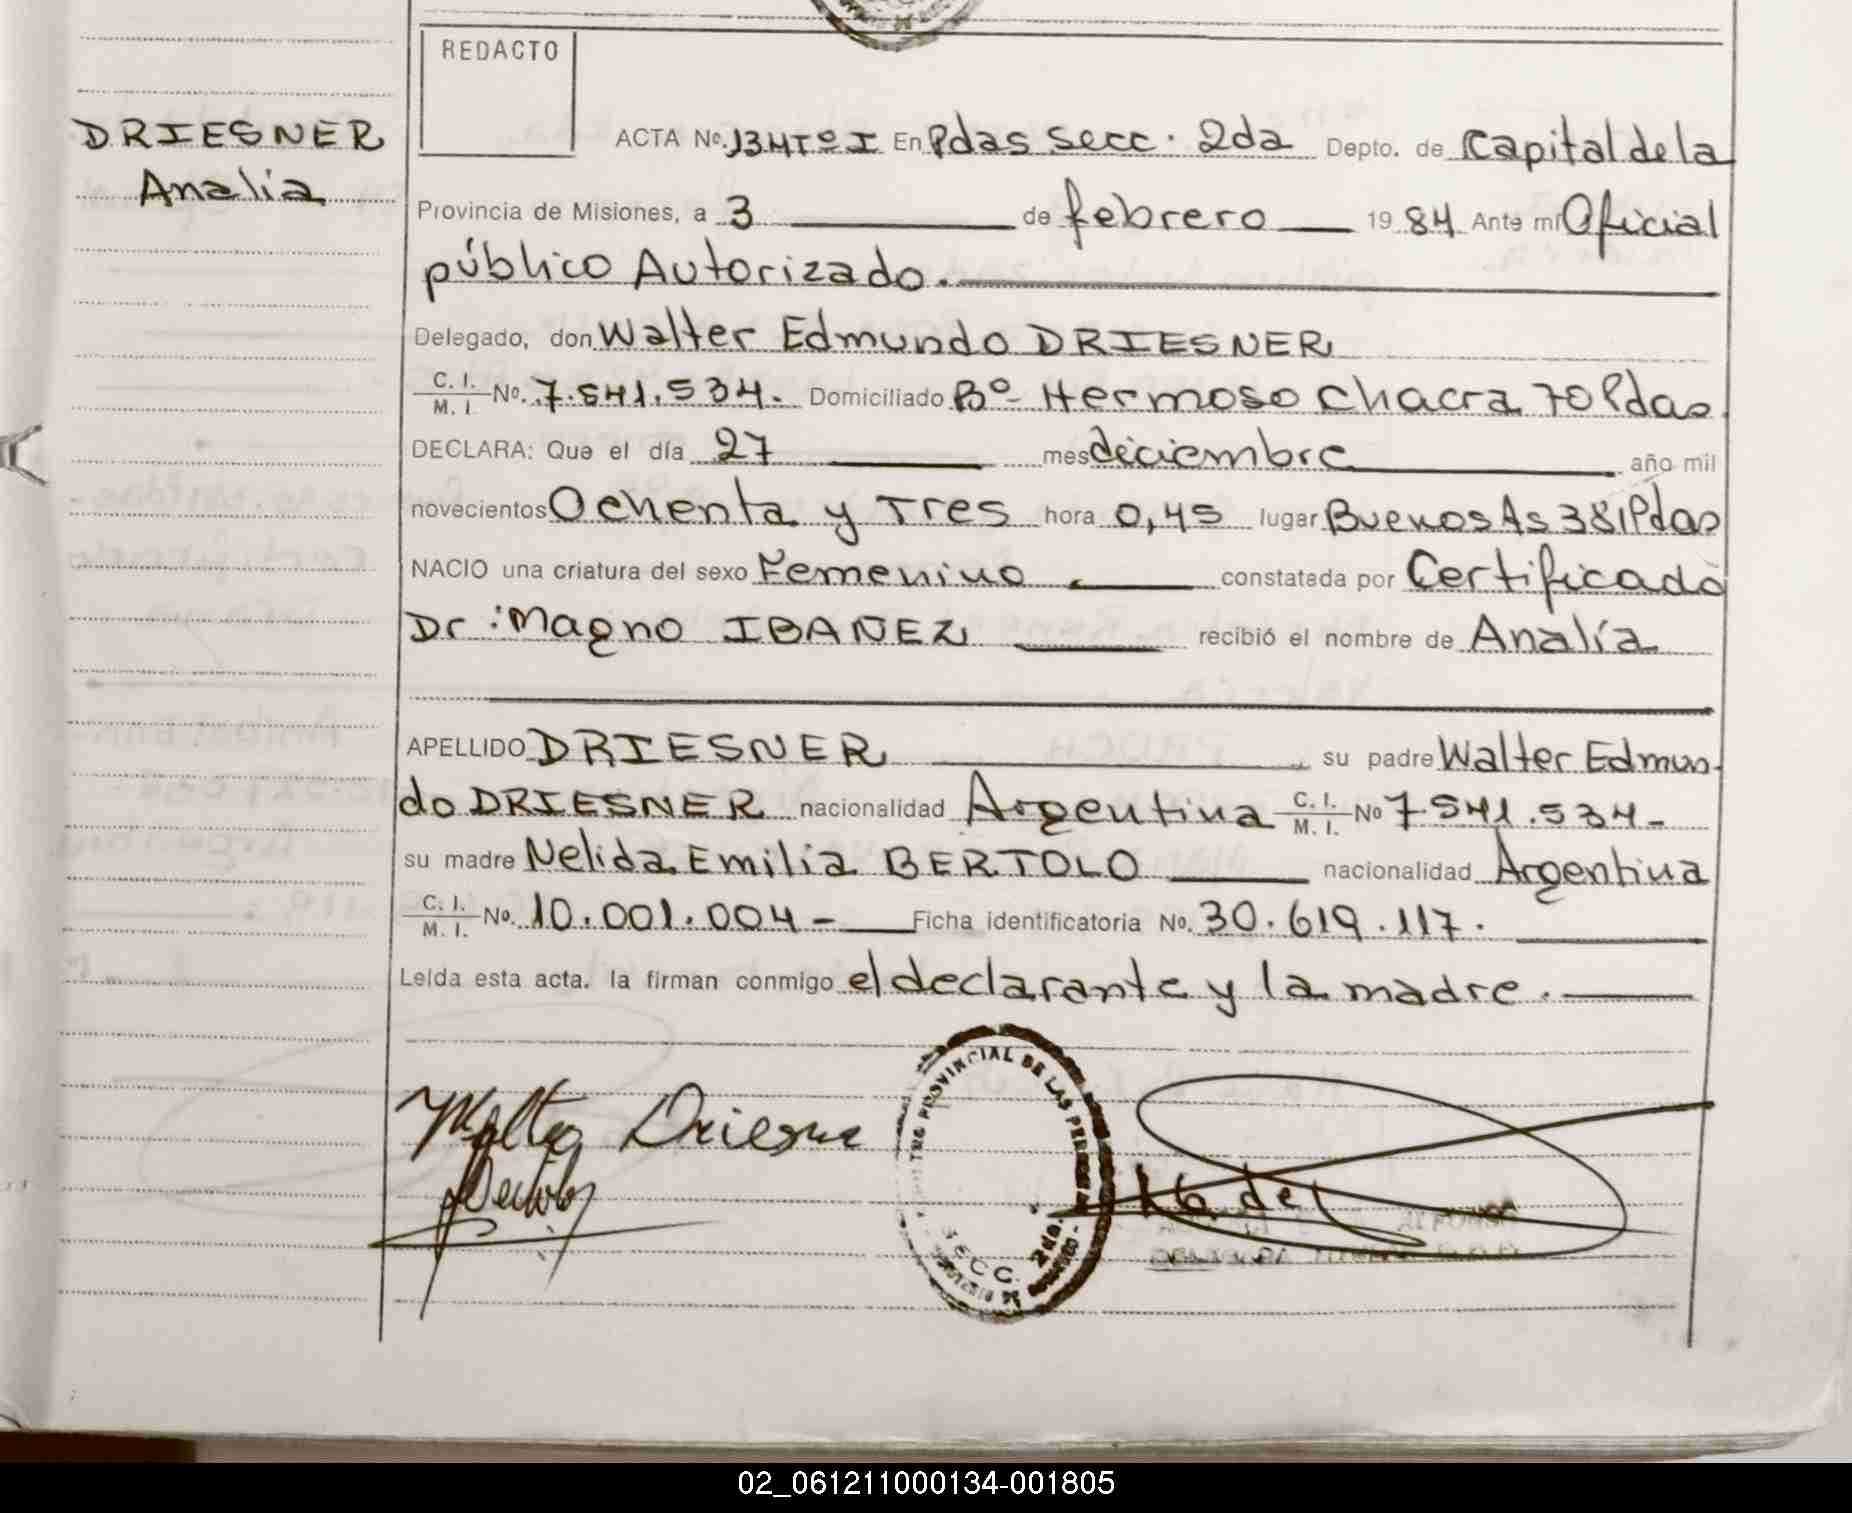 REDACTO
DRIESNER
Analía
ACTA Nº. 134Tº I En Pdas secc. 2da Depto. de Capital de la
Provincia de Misiones, a 3 de febrero 1984 Ante mí Oficial
público Autorizado.
Delegado, don Walter Edmundo DRIESNER
C. I. / M. I. Nº. 7.541.534. Domiciliado Bº Hermoso Chacra 70 Pdas.
DECLARA: Que el día 27 mes deciembre año mil
novecientos Ochenta y Tres hora 0,45 lugar Buenos As 381 Pdas
NACIO una criatura del sexo Femenino constatada por Certificado
Dr: Magno IBAÑEZ recibió el nombre de Analía
APELLIDO DRIESNER su padre Walter Edmun-
do DRIESNER nacionalidad Argentina C. I. / M. I. Nº 7.541.534-
su madre Nelida Emilia BERTOLO nacionalidad Argentina
C. I. / M. I. Nº. 10.001.004- Ficha identificatoria Nº. 30.619.117.
Leída esta acta. la firman conmigo el declarante y la madre.
Walter Driesner
PROVINCIAL DE LAS PER
SECC. 2da.
02_061211000134-001805